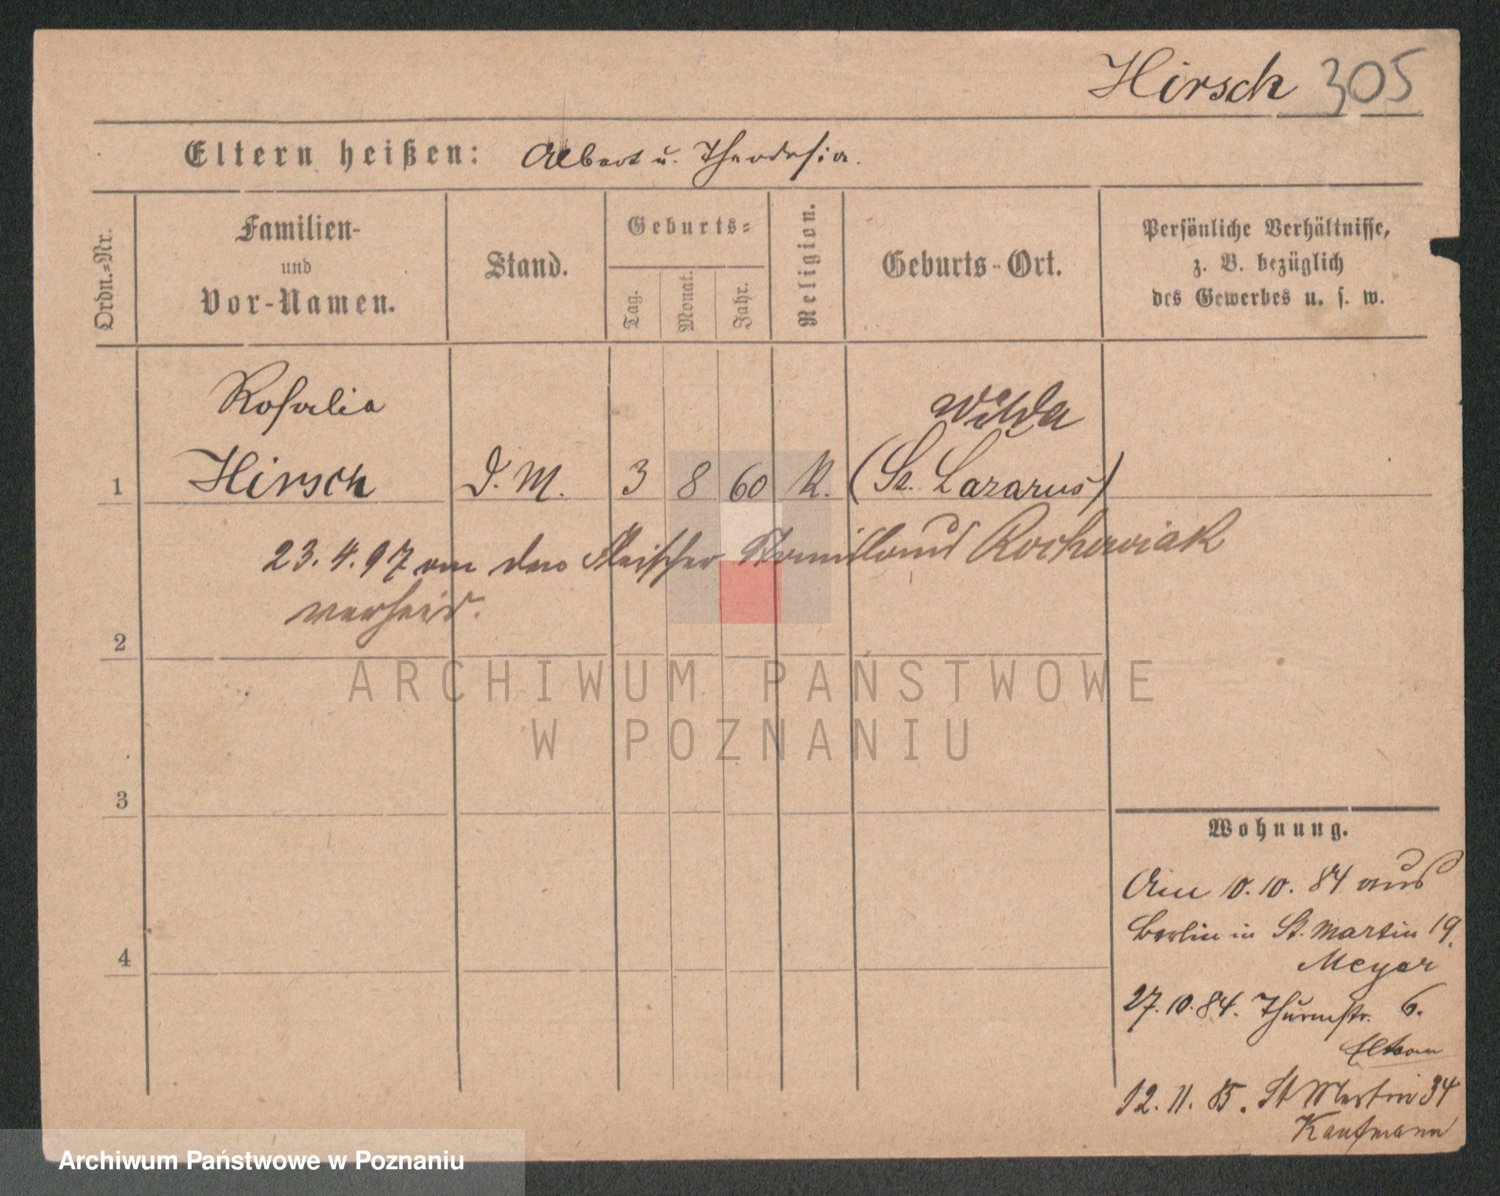 Hirsch 305
Eltern heißen: Albert u. Theodosia.
Ordn.-Nr.
Familien-
und
Vor-Namen.
Stand.
Geburts-
Tag.
Monat.
Jahr.
Religion.
Geburts-Ort.
Persönliche Verhältnisse,
z. B. bezüglich
des Gewerbes u. s. w.
Rosalia
Wilda
1 Hirsch D. M. 3 8 60 K. (St. Lazarus)
23. 4. 97 an den Fleischer Stanislaus Rochowiak
verheir.
2
ARCHIWUM PAŃSTWOWE
W POZNANIU
3
4
Wohnung.
Am 10. 10. 84 aus
Berlin in St. Martin 19.
Meyer
27. 10. 84. Thurmstr. 6.
Eltern
12. 11. 85. St Martin 34
Kaufmann
Archiwum Państwowe w Poznaniu